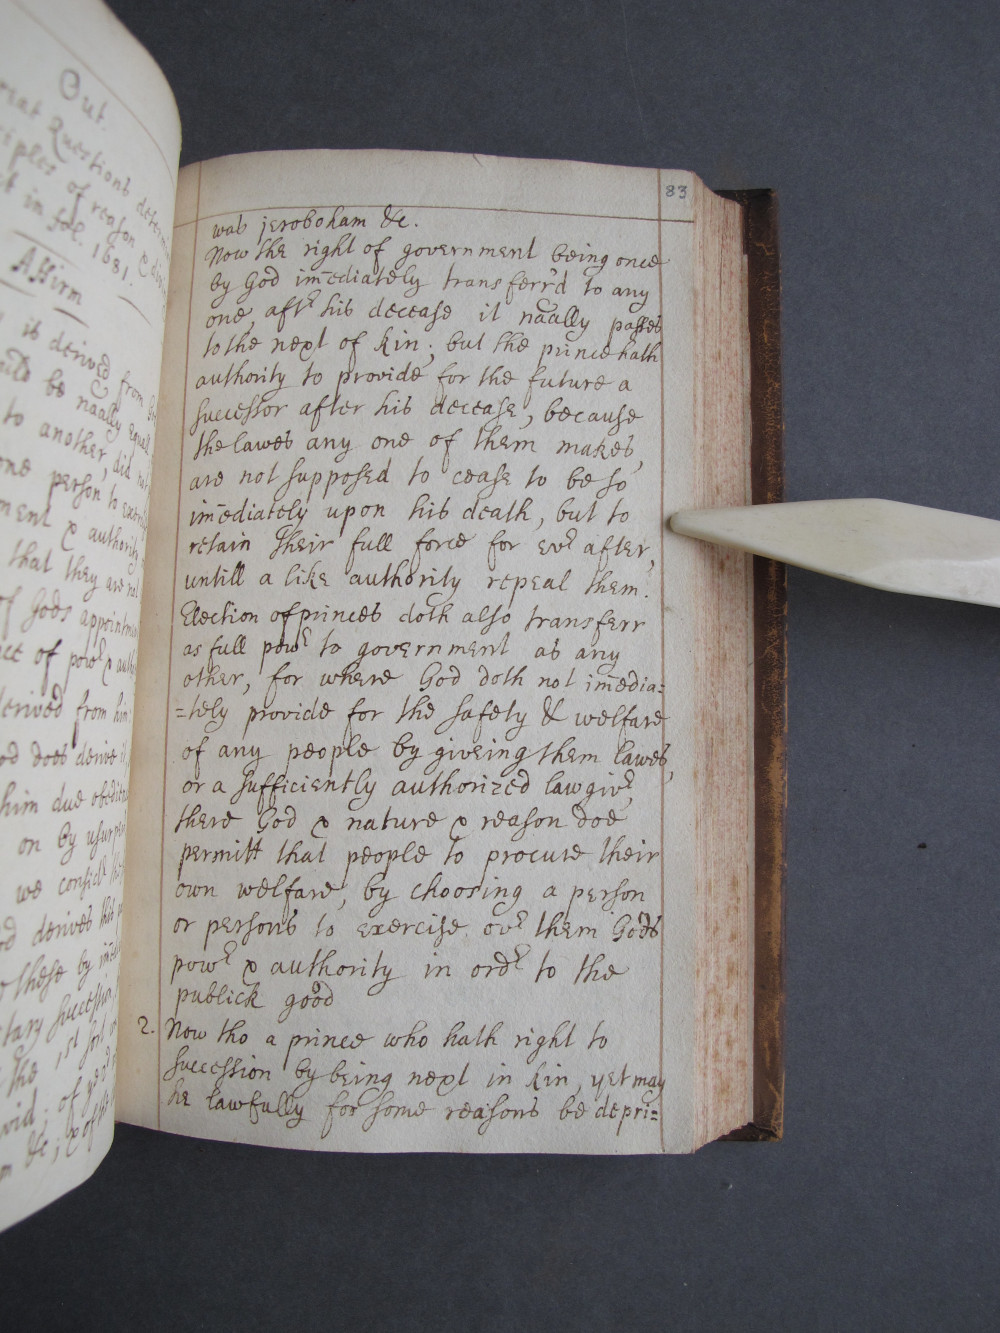 Out.
reat Questions determi
riples of reason & divin
t in fol. 1681.
Affirm
it is derived from G
ould be naãlly equall
to another, did not
one person to exercise
ment & authority
that they are not
of Gods appointmen
act of powr & autho
derived from him
od does derive it
him due obedien
on by usurpe
we consider the
od derives this
these by imedi
tary succession
the 1st sort
vid; of ye 2d
on &c, & of the
83
was jeroboham &c.
Now the right of government being once
by God imēdiately transferr'd to any
one, aftr his decease it naãlly passes
to the next of kin; but the prince hath
authority to provide for the future a
successor after his decease, because
the lawes any one of them makes,
are not supposed to cease to be so
imēdiately upon his death, but to
retain their full force for evr after,
untill a like authority repeal them.
Election of princes doth also transferr
as full powr to government as any
other, for where God doth not imēdia=
=tely provide for the safety & welfare
of any people by giveing them lawes,
or a sufficiently authorized lawgivr,
there God & nature & reason doe
permitt that people to procure their
own welfare, by choosing a person
or persons to exercise ovr them Gods
powr & authority in ordr to the
publick good
2. Now tho a prince who hath right to
succession by being next in kin, yet may
he lawfully for some reasons be depri=